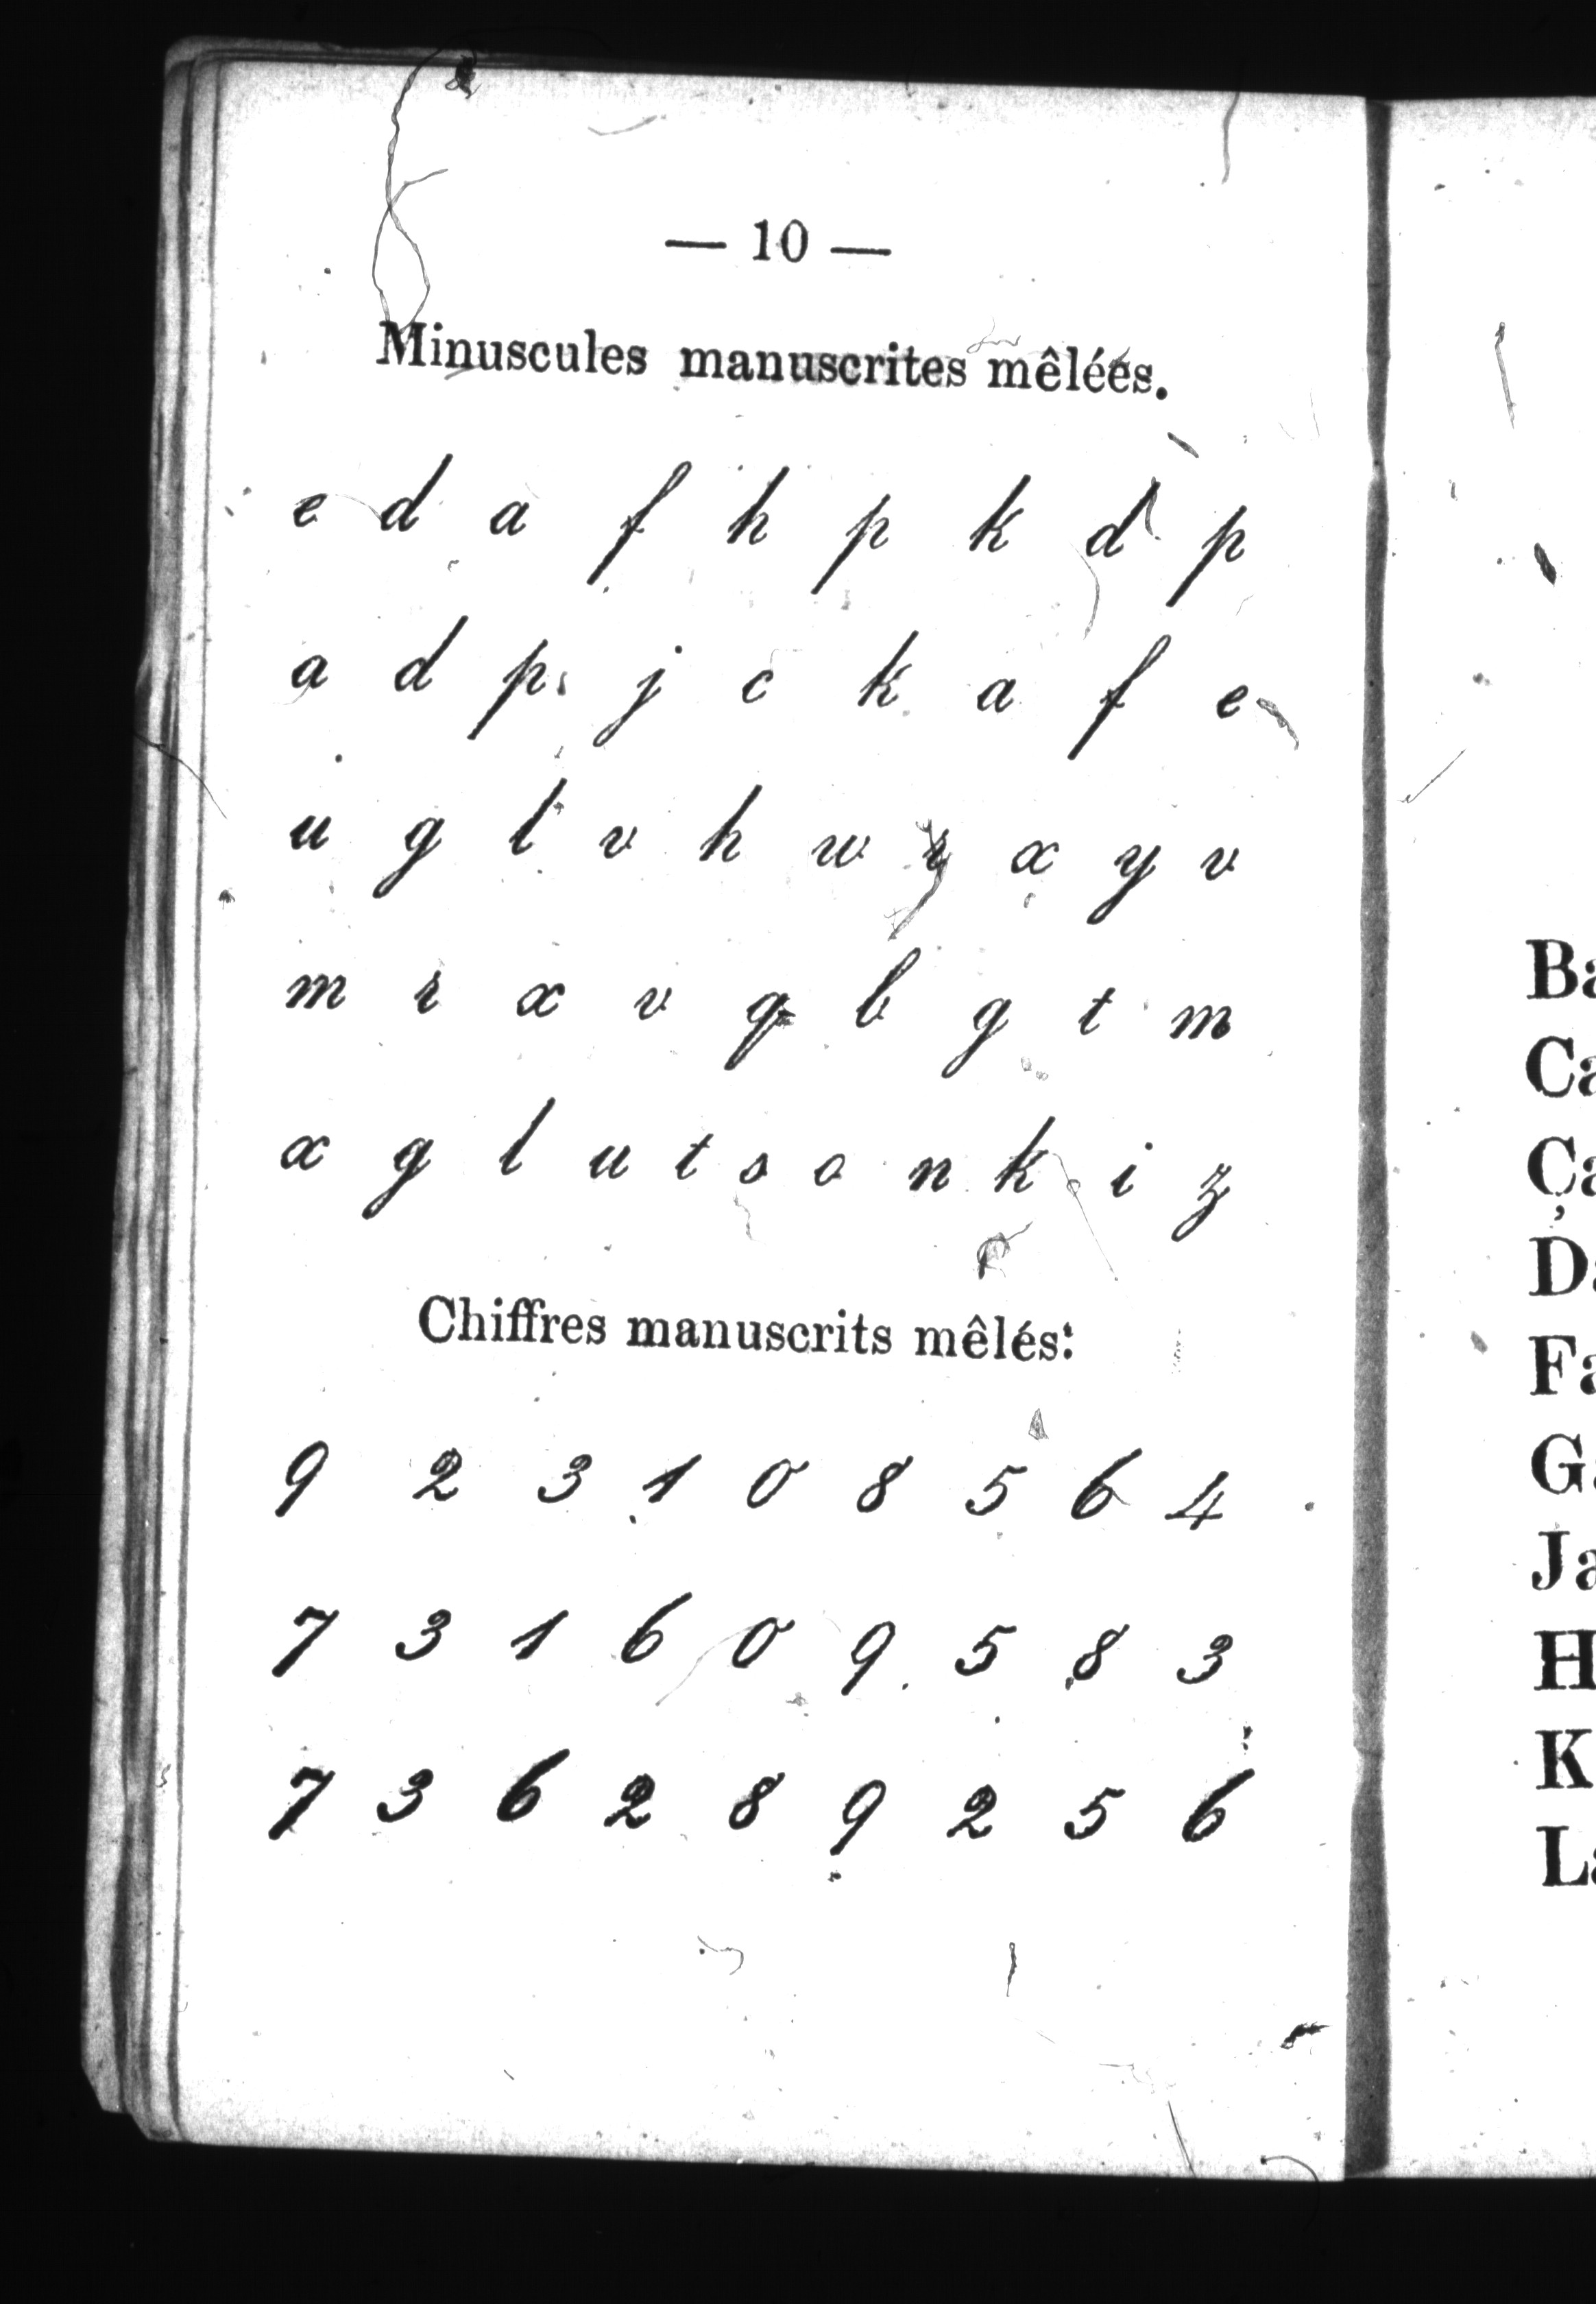 — 10 —
Minuscules manuscrites mêlées.
e d a f h p k d p
a d p j c k a f e
u g l v h w r x y v
m r x v q b g t m
x g l u t s o n k i z
Chiffres manuscrits mêlés:
9 2 3 1 0 8 5 6 4
7 3 1 6 0 9 5 8 3
7 3 6 2 8 9 2 5 6
Ba
Ca
Ça
Da
Fa
Ga
Ja
H
K
La